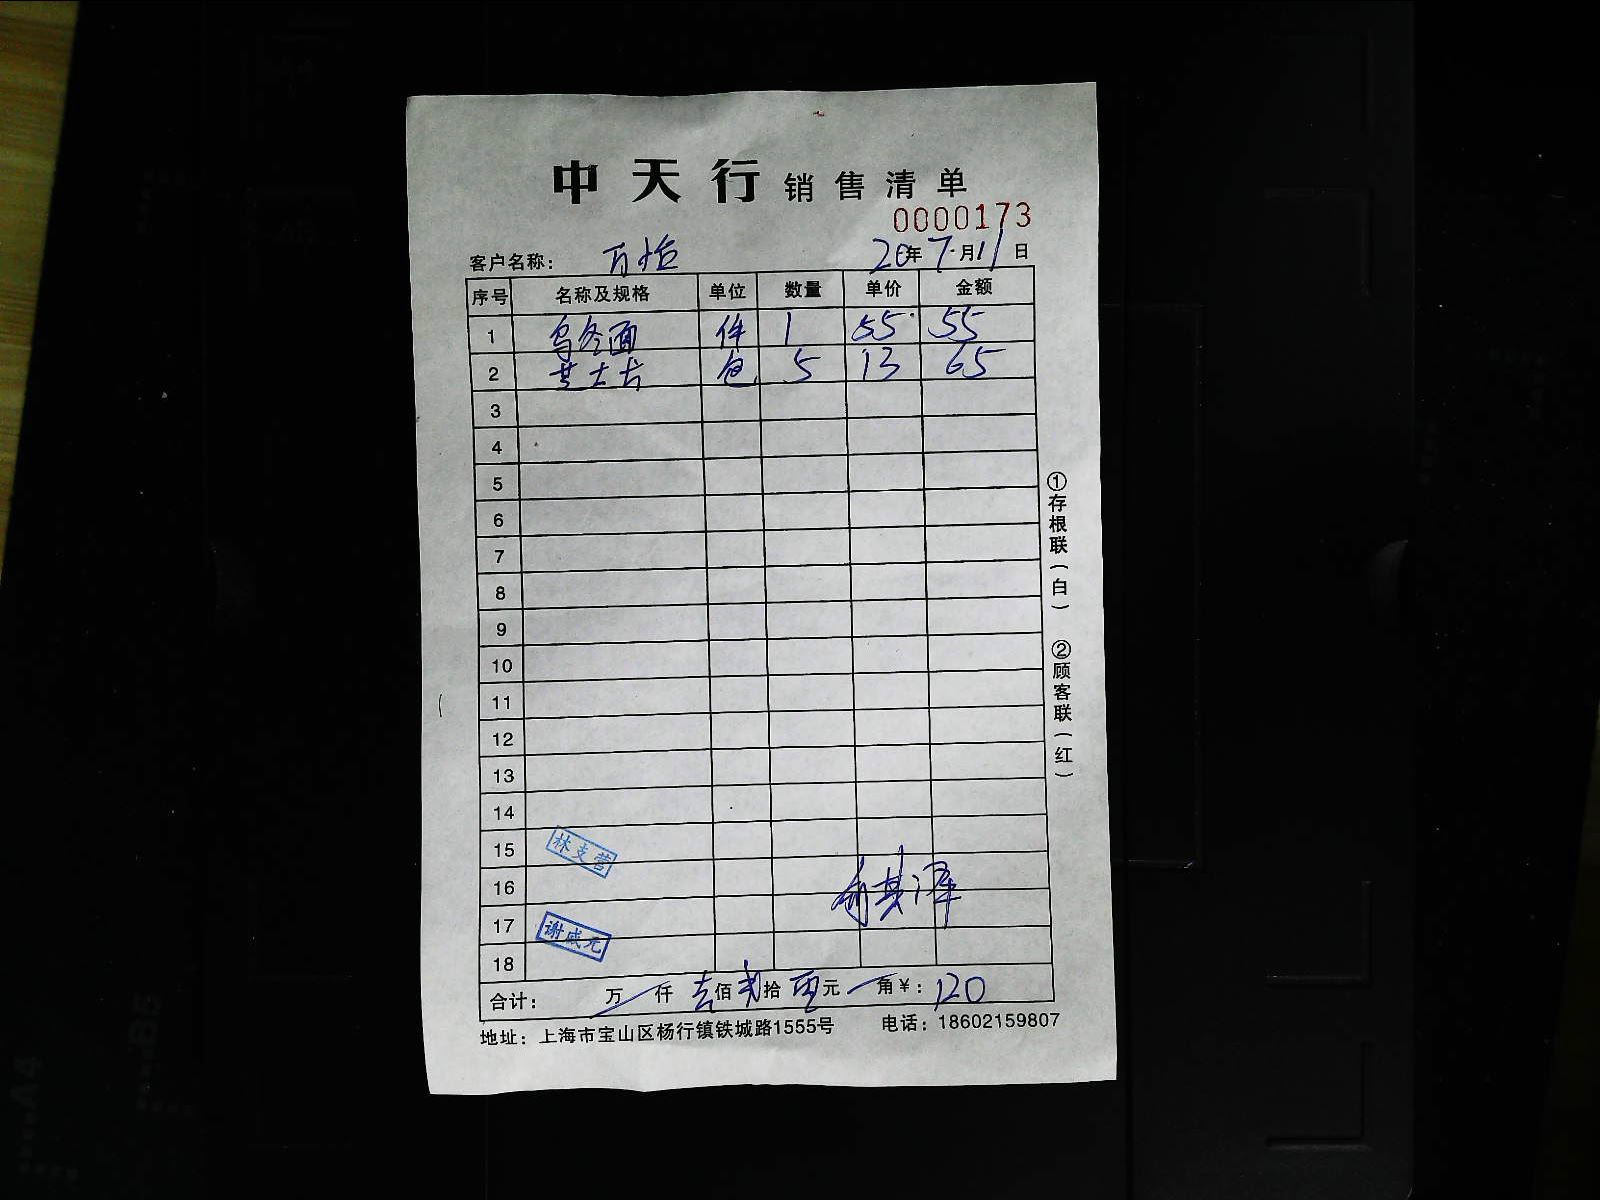 中天行销售清单
0000173
客户名称: 万怡 20年7月11日
序号 名称及规格 单位 数量 单价 金额
1 乌冬面 件 1 55 55
2 芝士片 包 5 13 65
3
4
5
6
7
8
9
10
11
12
13
14
15 林支营
16
17 谢成元
18
合计: 万 仟 壹佰贰拾 元 角¥: 120
地址: 上海市宝山区杨行镇铁城路1555号 电话: 18602159807
①存根联(白) ②顾客联(红)